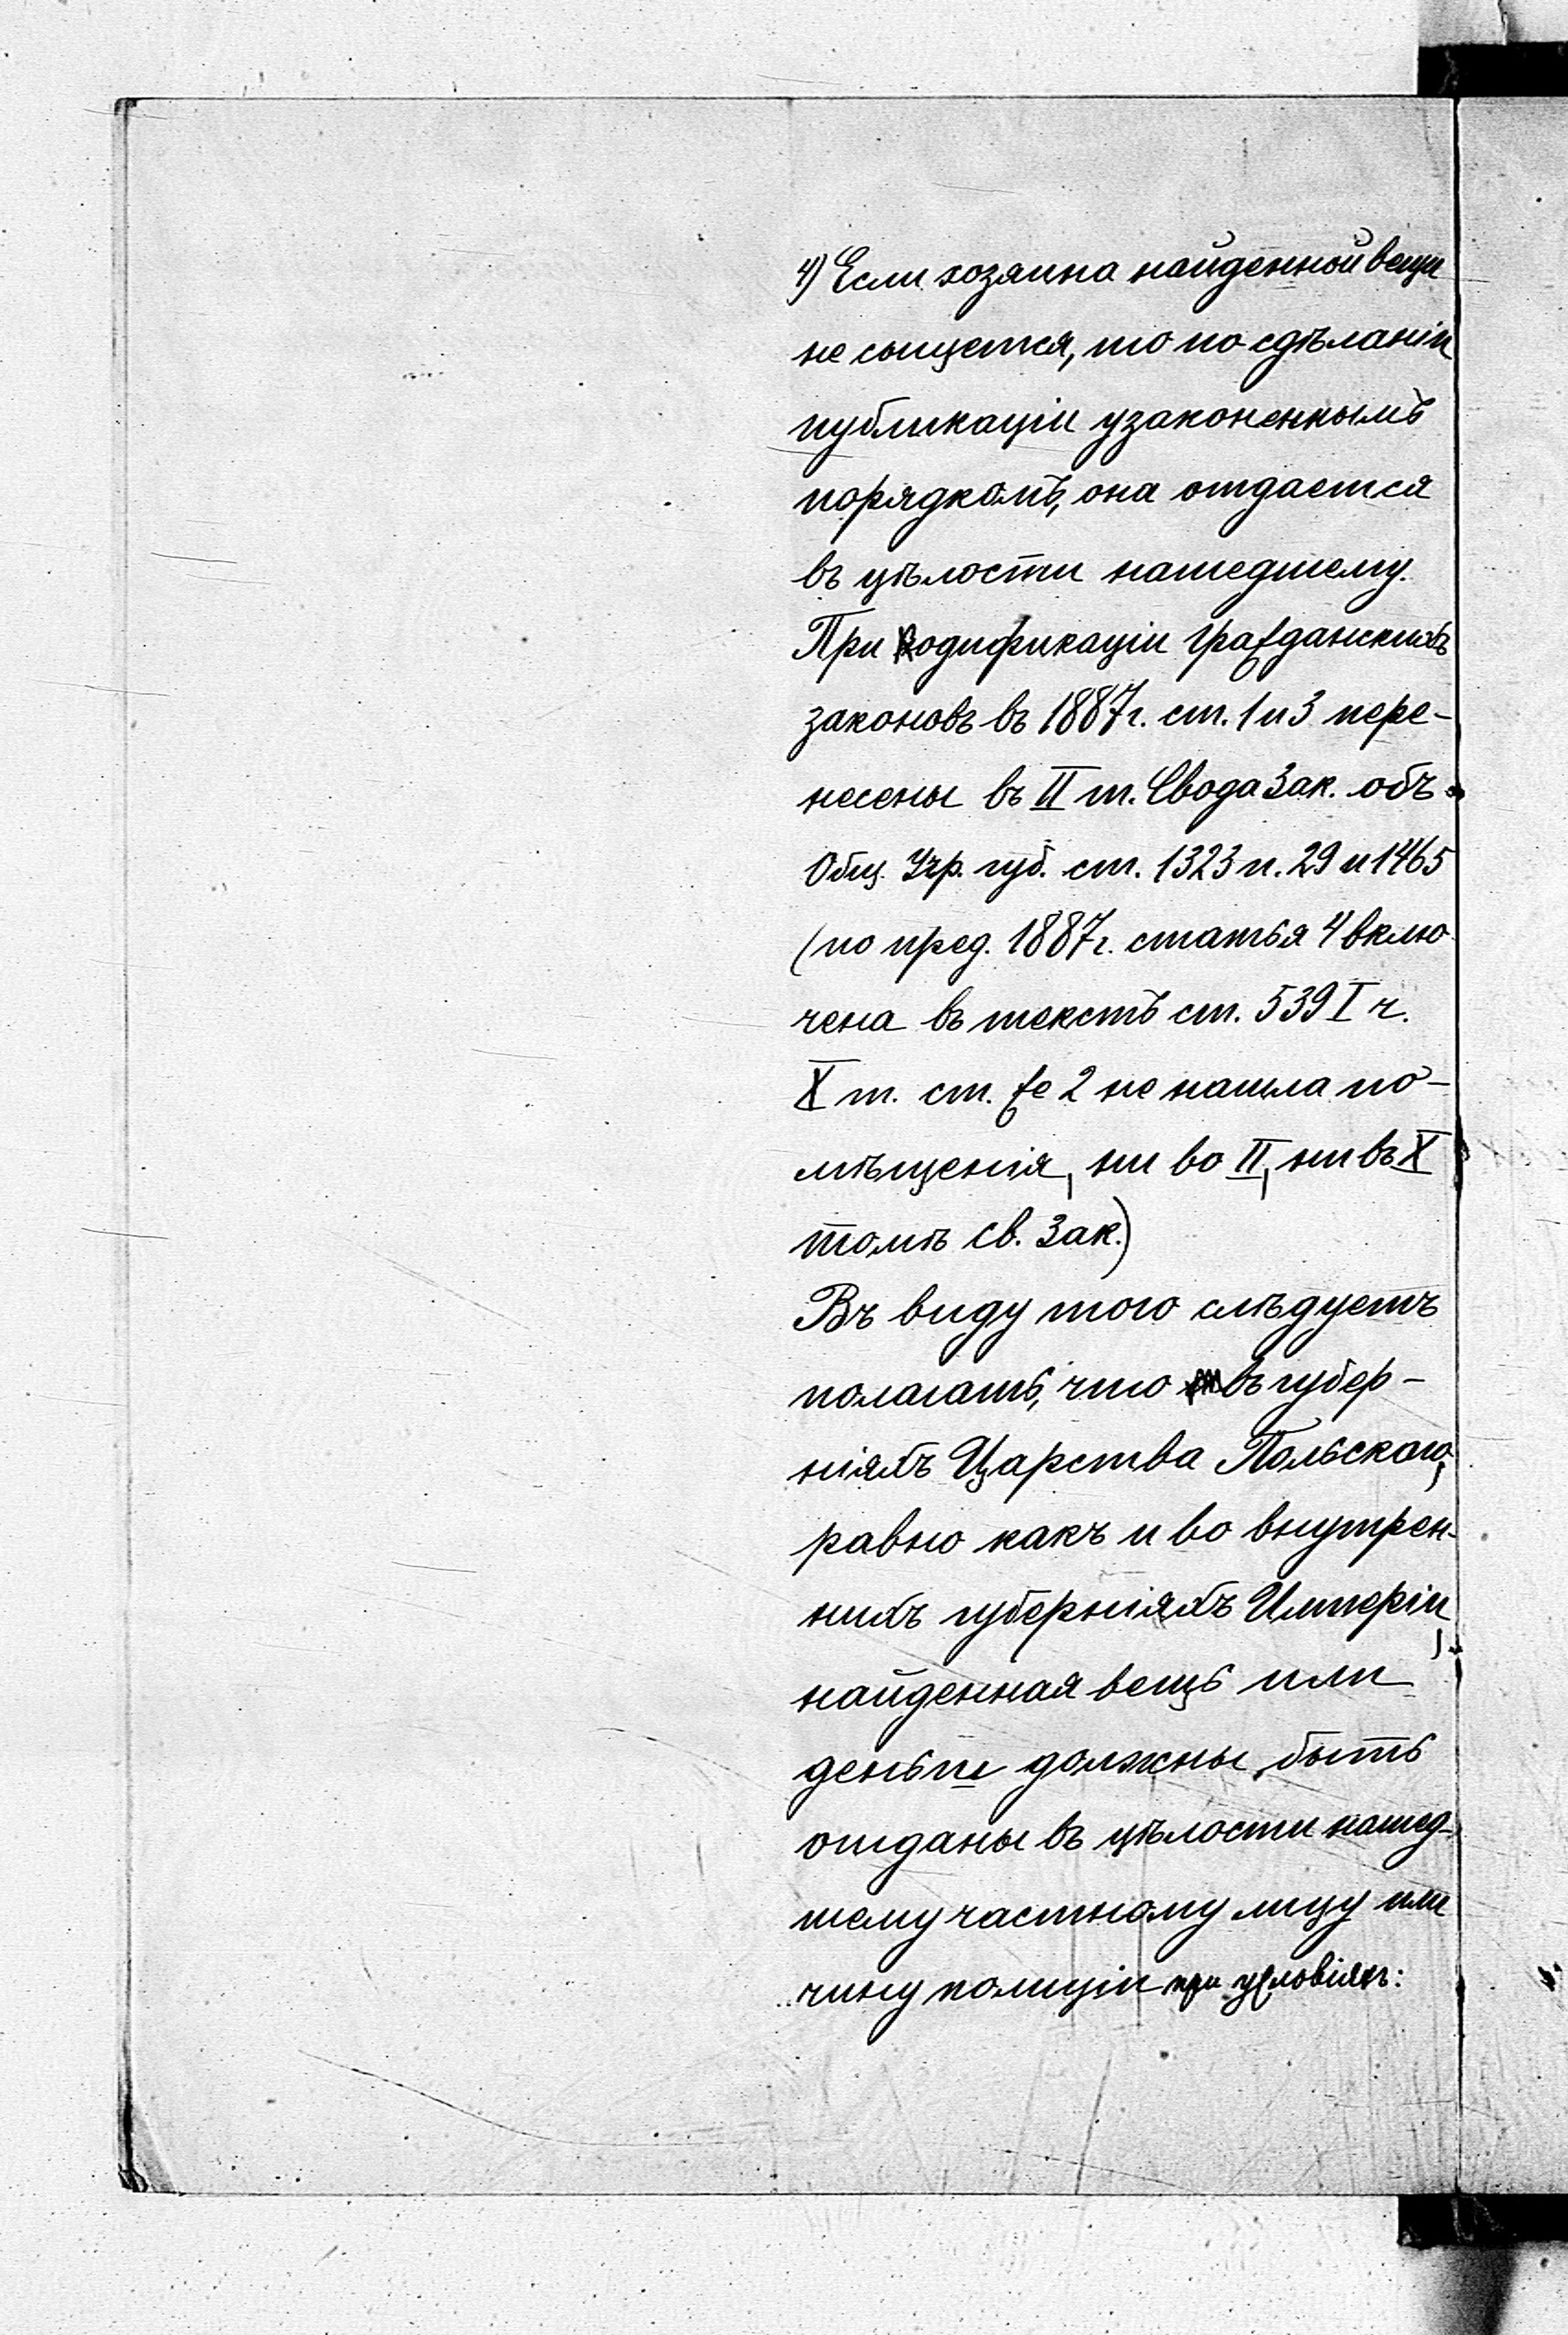 4) Если хозяина найденной вещи
не сыщется, то по сдѣланіи
публикаціи узаконеннымъ
порядкомъ, она отдается
въ цѣлости нашедшему.
При кодификаціи гражданскихъ
законовъ въ 1887 г. ст. 1 и 3 пере-
несены въ II т. Свода Зак. объ
Общ. Учр. губ. ст. 1323 п. 29 и 1465
(по прод. 1887 г. статья 4 вклю
чена въ текстъ ст. 539 I ч.
X т. ст. же 2 не нашла по-
мѣщенія, ни во II, ни въ X
томѣ Св. Зак.)
Въ виду того слѣдуетъ
полагать, что въ губер-
ніяхъ Царства Польскаго,
равно какъ и во внутрен-
нихъ губерніяхъ Имперіи,
найденная вещь или
деньги должны быть
отданы въ цѣлости нашед-
шему частному лицу или
чину полиціи при условіяхъ: